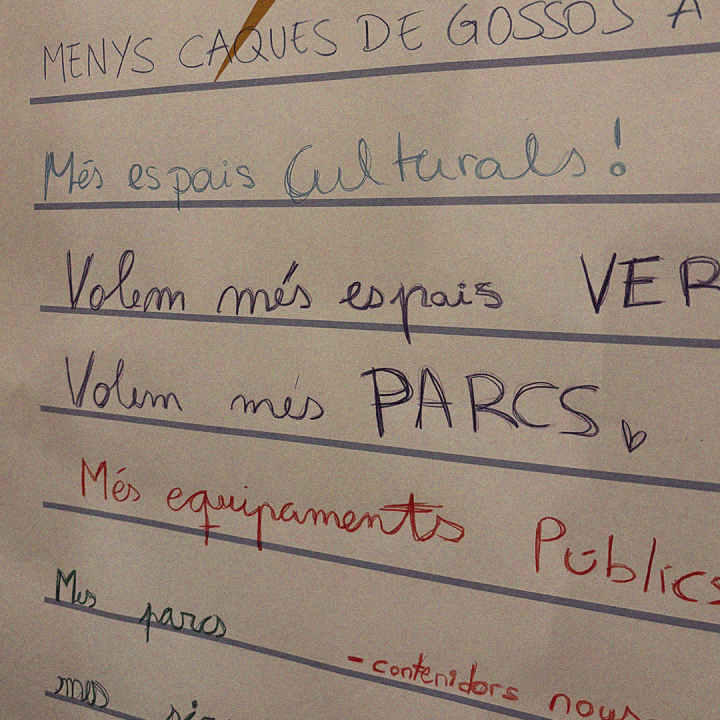 MENYS CAQUES DE GOSSOS A
Més espais Culturals!
Volem més espais VER
Volem més PARCS
Més equipaments Públics
Mes parcs
- contenidors nous
mes